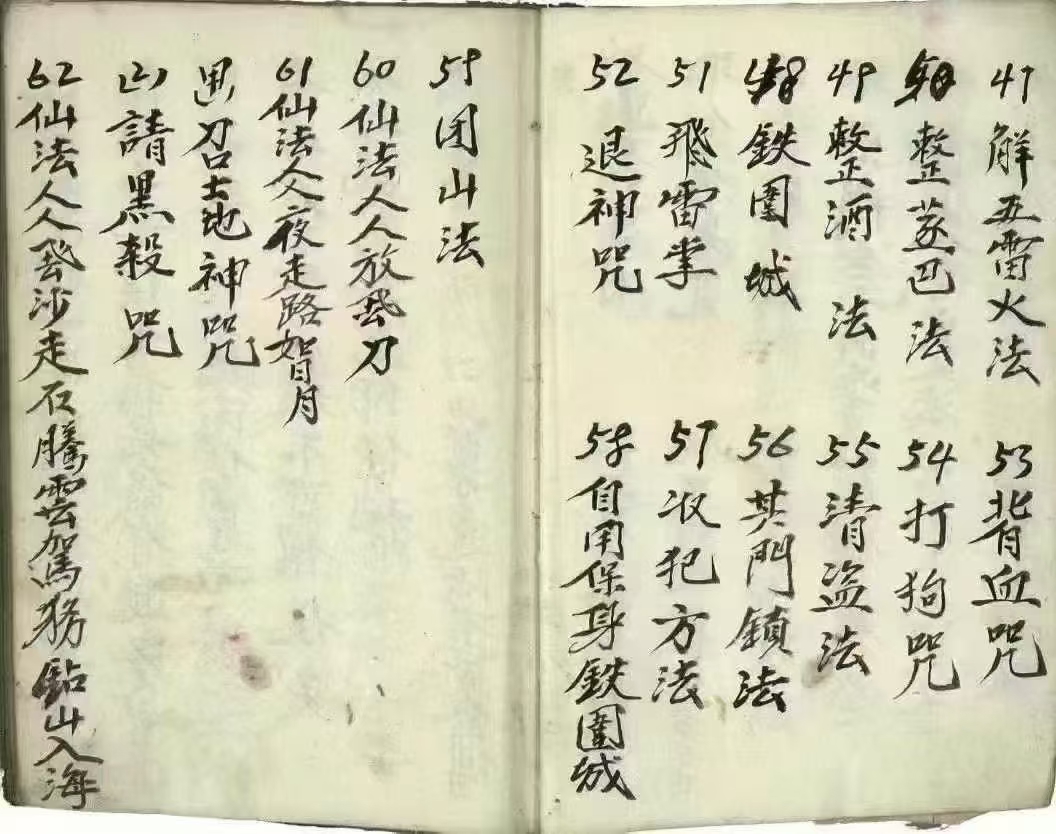 47 解五雷火法
整蒸巴法
49 整酒法
鉄圍城
51 飛雷掌
52 退神咒
53 背血咒
54 打狗咒
55 清盗法
56 其門鎖法
57 收犯方法
58 自用保身鉄圍城
59 团山法
60 仙法人人放飛刀
61 仙法人人夜走路如月
刀召土地神咒
請黑殺咒
62 仙法人人飛沙走石騰雲駕務鉆山入海